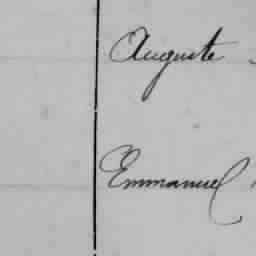 Auguste
Emmanuel